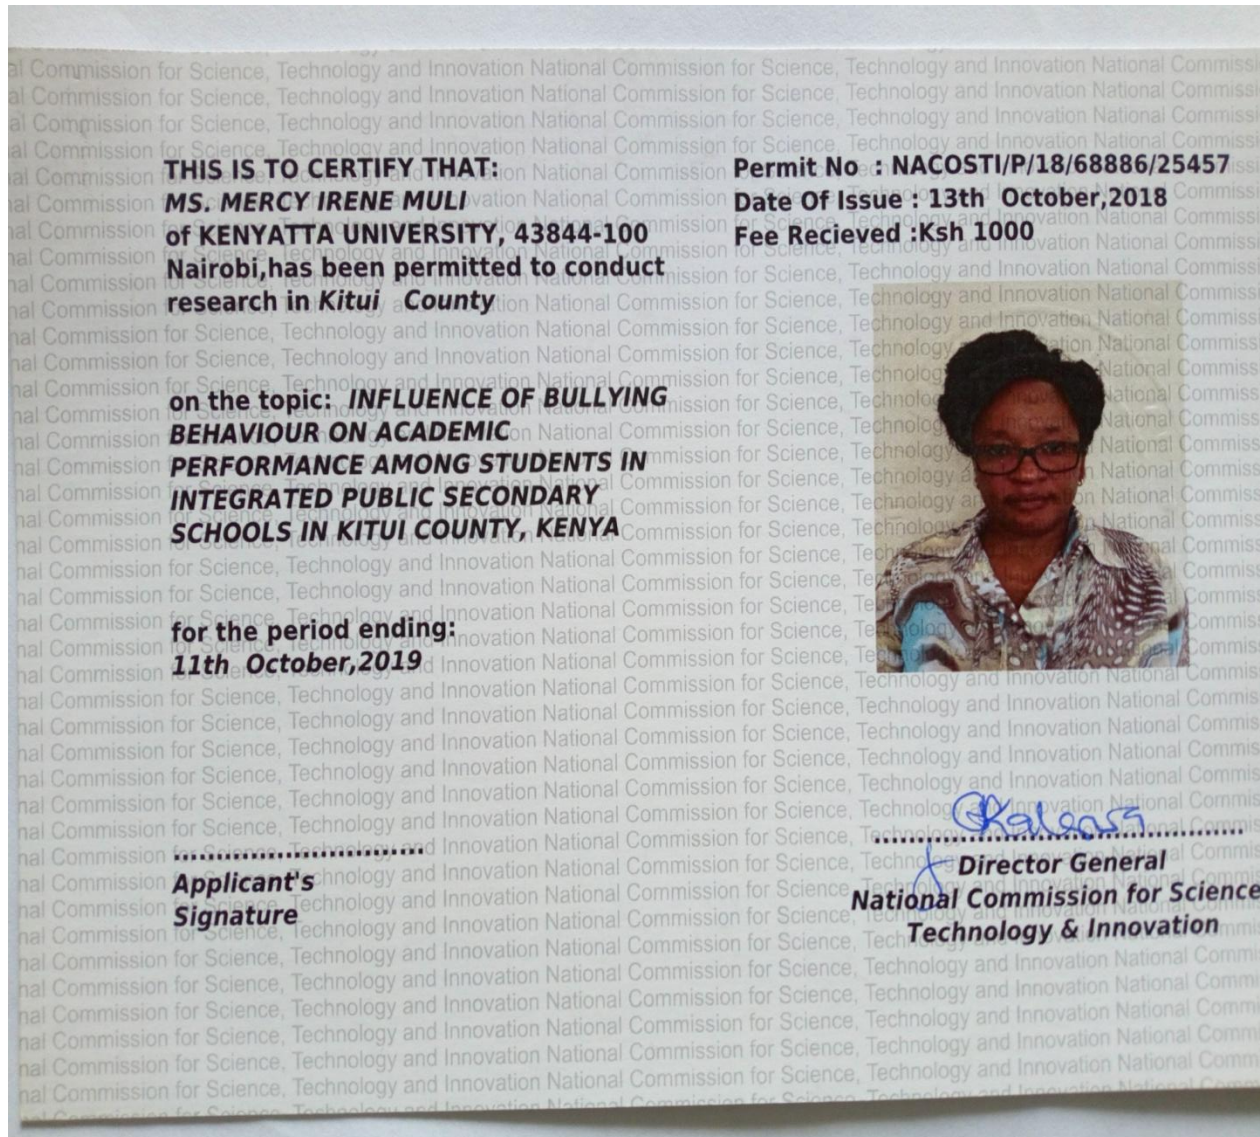 THIS IS TO CERTIFY THAT:
MS. MERCY IRENE MULI
of KENYATTA UNIVERSITY, 43844-100
Nairobi,has been permitted to conduct
research in Kitui County
on the topic: INFLUENCE OF BULLYING
BEHAVIOUR ON ACADEMIC
PERFORMANCE AMONG STUDENTS IN
INTEGRATED PUBLIC SECONDARY
SCHOOLS IN KITUI COUNTY, KENYA
for the period ending:
11th October,2019
Applicant's
Signature
Permit No : NACOSTI/P/18/68886/25457
Date Of Issue : 13th October,2018
Fee Recieved :Ksh 1000
Director General
National Commission for Science
Technology & Innovation
National Commission for Science, Technology and Innovation